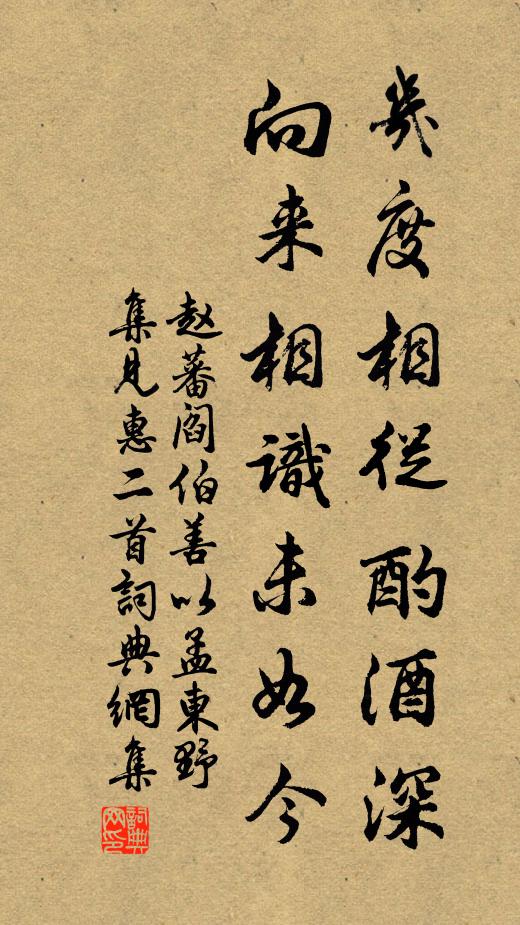 幾度相從酌酒深
向来相識未如今
赵蕃阎伯善以孟東野
集見惠二首詞典網集
詞典网印